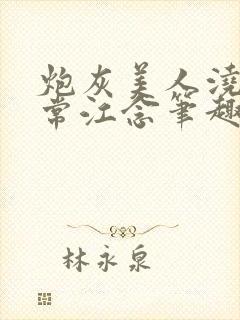 炮灰美人浇
常江念笔趣
林永泉